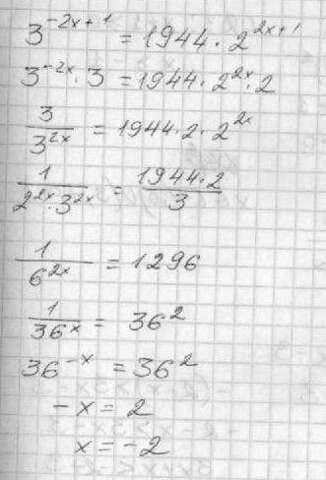 3^{-2x+1} = 1944 · 2^{2x+1}
3^{-2x} · 3 = 1944 · 2^{2x} · 2
3/3^{2x} = 1944 · 2 · 2^{2x}
1/(2^{2x} · 3^{2x}) = (1944 · 2)/3
1/6^{2x} = 1296
1/36^x = 36^2
36^{-x} = 36^2
-x = 2
x = -2